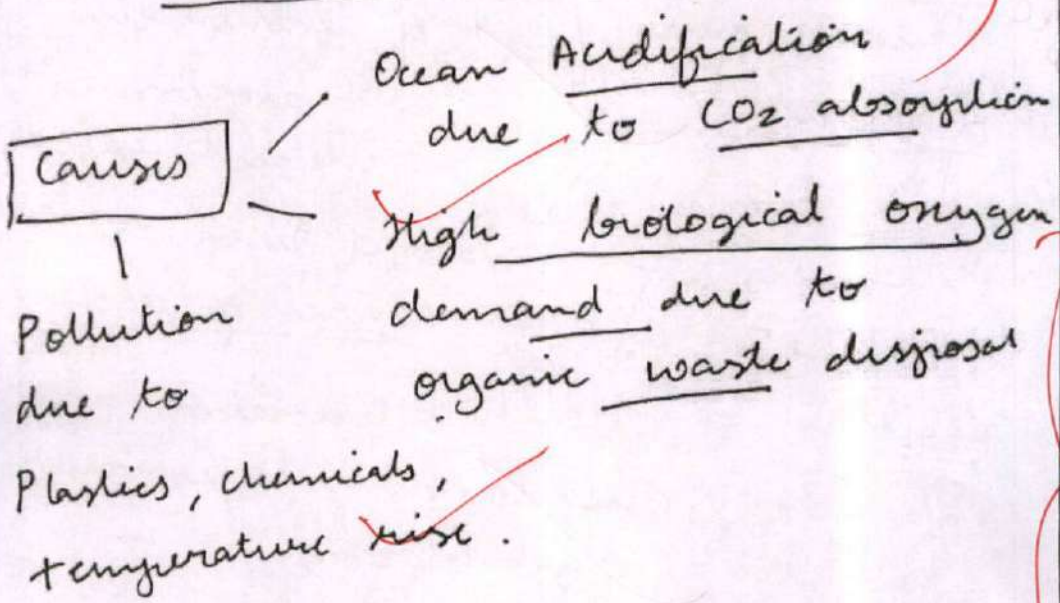 Ocean Acidification
due to CO2 absorption
Causes
High biological oxygen
demand due to
organic waste disposal
Pollution
due to
Plastics, chemicals,
temperature rise.